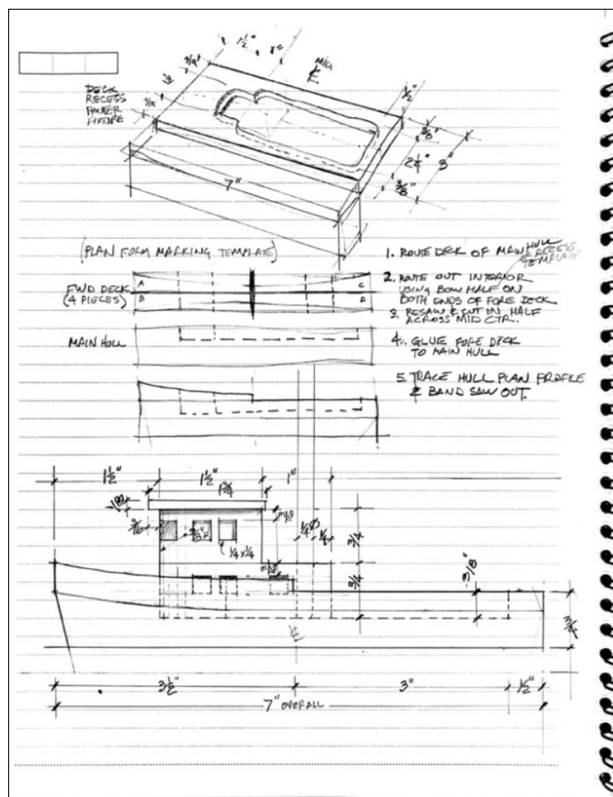 DECK
RECESS
ROUTER
FIXTURE
1½"
1"
MID
℄
½"
3/8"
2¼"
3"
3/8"
7"
(PLAN FORM MARKING TEMPLATE)
FWD DECK
(4 PIECES)
A
B
C
D
MAIN HULL
1. ROUTE DECK OF MAIN HULL
RECESS
TEMPLATE
2. ROUTE OUT INTERIOR
USING BOW HALF ON
BOTH ENDS OF FORE DECK
3. RESAW & CUT IN HALF
ACROSS MID CTR.
4. GLUE FORE DECK
TO MAIN HULL
5. TRACE HULL PLAN PROFILE
& BAND SAW OUT.
1½"
1½"
1"
1¾
1/8
3/16
¼ x ¼
¼
3/4
3/4
3/8"
3/4
3½"
3"
½"
7" OVERALL